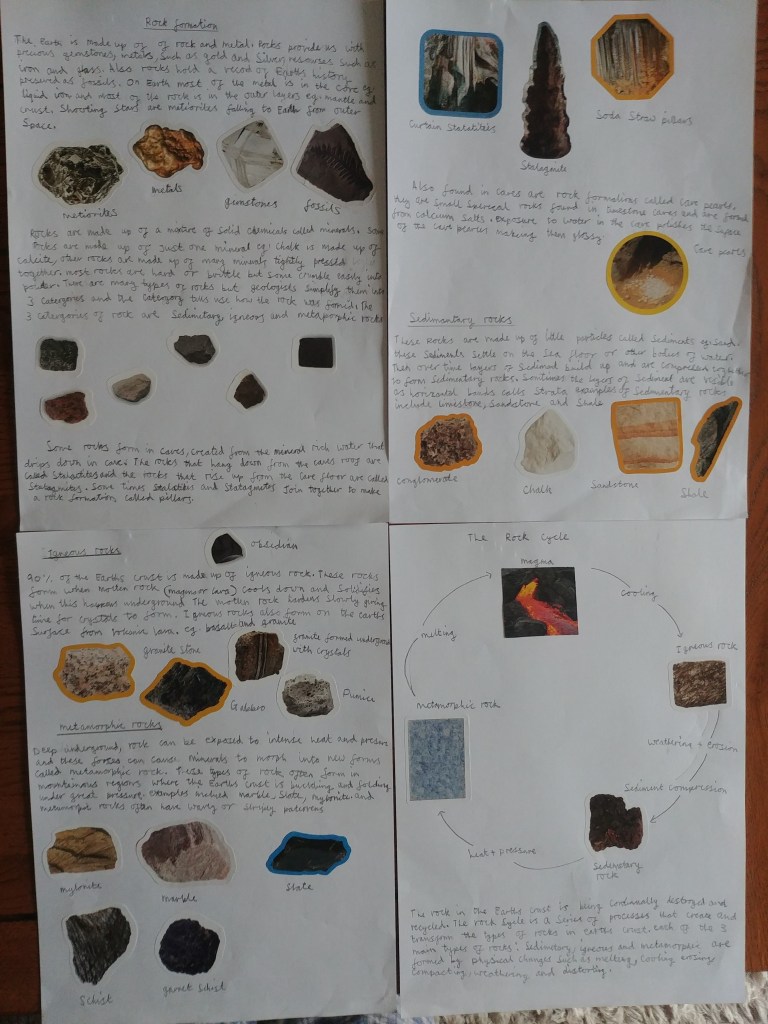 Rock formation
The Earth is made up of of rock and metal. Rocks provide us with
precious gemstones, meters, such as gold and silver, resourses such as
iron and glass. Also rocks hold a record of Earths history
preserved as fossils. On Earth most of the metal is in the core eg.
liquid iron and most of the rock is in the outer layers eg. mantle and
crust. Shooting stars are meteorites falling to Earth from outer
space.
metiorites
metals
gemstones
fossils
Rocks are made up of a mixture of solid chemicals called minerals. Some
rocks are made up of just one mineral eg chalk is made up of
calcite, other rocks are made up of many minerals tightly pressed
together. most rocks are hard or brittle but some crumble easily into
powder. There are many types of rocks but geologists simplify them into
3 catergories and the catergory tells use how the rock was formed. The
3 catergories of rock are Sedimetary, igneors and metaporphic rocks
Some rocks form in caves, created from the mineral rich water that
drips down in caves. The rocks that hang down from the caves roof are
called Stalactites and the rocks that rise up from the cave floor are called
Stalagmites. Some times and Join together to make
a rock formation called pillars.
Curtain
Stalagmite
Soda Straw pillars
Also found in caves are rock formations called cave pearls.
they are small rocks found in limestone caves and are formed
from calcium salts. Exposure to water in the cave polishes the surface
of the cave pearles making them glossy.
Cave pearls
Sedimentary rocks
These Rocks are made up of little particles called Sediments eg. Sand.
these sediments settle on the sea floor or other bodies of water.
Then over time layers of sediment build up and are compressed together
to form sedimentary rocks. Somtimes the layers of sediment are visible
as horizontal bands calls Strata. examples of Sedimentary rocks
include limestone, Sandstone and Shale
conglomerate
Chalk
Sandstone
Shale
Igneous rocks
obsidian
90% of the Earths crust is made up of igneous rock. These rocks
form when molten rock (magma or lava) cools down and Solidifies
when this happens underground the molten rock hardens slowly giving
time for crystals to form. Igneous rocks also form on the earths
surface from volcanic lava. eg. basalt and granite
granite stone
granite formed underground
with crystals
Gabbro
Pumice
metamorphic rocks
Deep underground, rock can be exposed to intense heat and pressure
and these forces can cause minerals to morph into new forms
called metamorphic rock. These types of rock often form in
mountainous regions where the Earths crust is buckling and folding
under great pressure. examples include marble, slate, mylonite and
metamorphic rocks often have wavy or stripey patterns
mylonite
marble
slate
Schist
garnet schist
The Rock Cycle
magma
cooling
melting
Igneous rock
metamorphic rock
weathering + erosion
Sediment compression
heat + pressure
Sedimetary
rock
The rock in the Earths crust is being continually destroyed and
recycled. The rock cycle is a series of processes that create and
transform the types of rocks in earths crust. each of the 3
main types of rocks: Sedimetary, igneous and metamorphic are
formed by physical changes such as melting, cooling erosing
compacting, weathering and distorting.